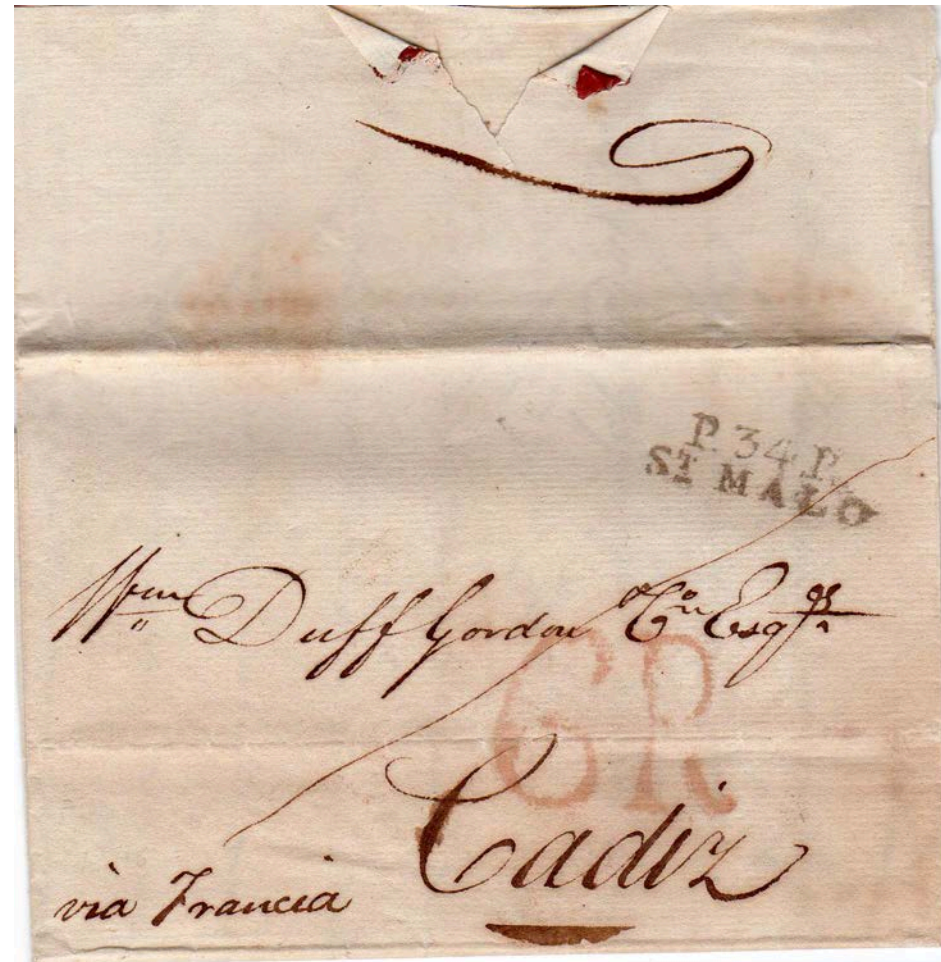 P. 34 P.
ST MALO
Wm Duff Gordon & Co Esqrs
6R
Cadiz
via Francia